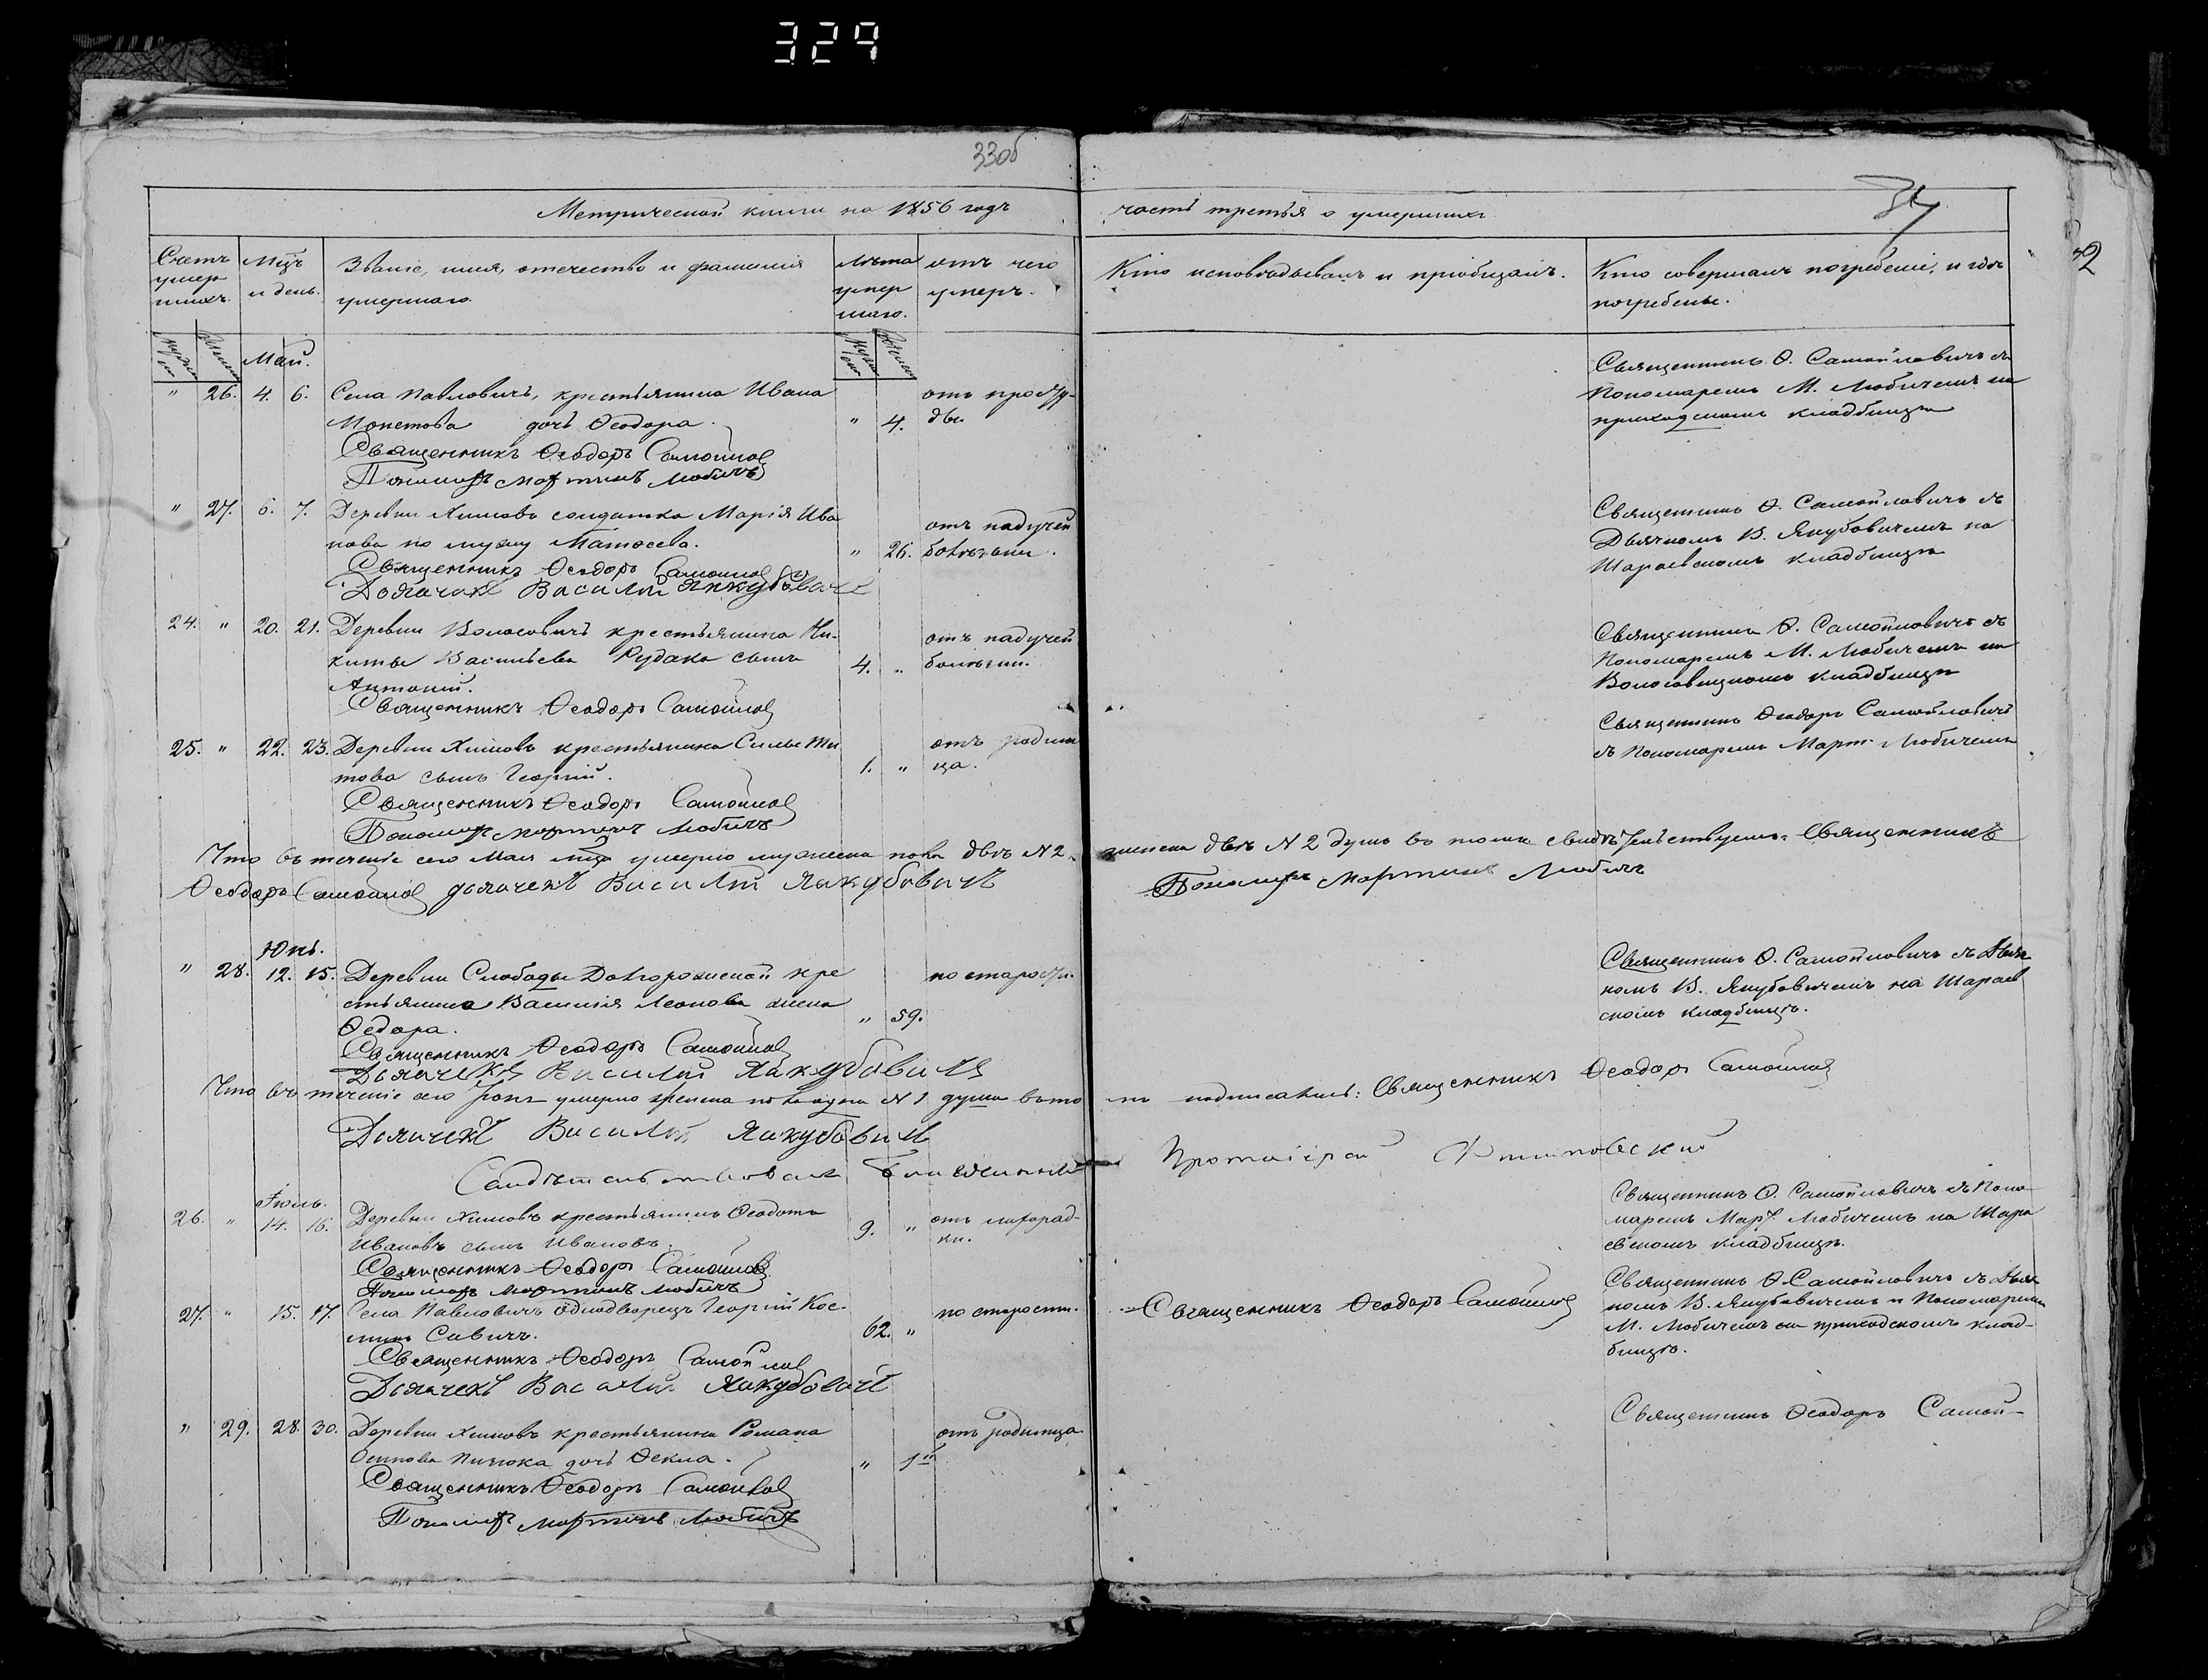 329
33об
34
Метрической книги на 1856 годъ
часть третья о умершихъ
Счетъ умер шихъ.
Мцъ и день.
Званіе, имя, отечество и фамилія умершаго.
Лѣта умер шаго.
отъ чего умеръ.
Кто исповѣдывалъ и пріобщалъ.
Кто совершалъ погребеніе, и гдѣ погребены.
2
Май.
" 26. 4. 6. Села Павловичъ, крестьянина Ивана
Монетова дочь Ѳеодора. " 4. отъ простуды.
Священникъ Ѳеодоръ Самойлов
Пономарь Мартинъ Любичъ
Священникъ Ѳ. Самойловичъ съ
Пономаремъ М. Любичемъ на
приходскомъ кладбищѣ
" 27. 6. 7. Деревни Химовъ солдатка Марія Ива
нова по мужу Матѳеева. " 26. отъ падучей болѣзни.
Священникъ Ѳеодоръ Самойлов
Дьячекъ Василій Якубовичъ
Священникъ Ѳ. Самойловичъ съ
Дьячкомъ В. Якубовичемъ на
Шараевскомъ кладбищѣ
24. " 20. 21. Деревни Волосовичъ крестьянина Ни-
киты Васильева Рудака сынъ 4. " отъ падучей болѣзни.
Антоній.
Священникъ Ѳеодоръ Самойлов
Священникъ Ѳ. Самойловичъ съ
Пономаремъ М. Любичемъ на
Волосовицкомъ кладбищѣ
25. " 22. 23. Деревни Химовъ крестьянина Силы Ти
това сынъ Георгій. 1. " отъ родимца.
Священникъ Ѳеодоръ Самойлов
Пономарь Мартинъ Любичъ
Священникъ Ѳеодоръ Самойловичъ
съ Пономаремъ Март. Любичемъ
Что въ теченіе сего Мая мца умерло мужеска пола двѣ N 2. женска двѣ N 2 душъ въ томъ свидѣтельствуемъ: Священникъ
Ѳеодоръ Самойлов дьячекъ Василій Якубовичъ
Пономарь Мартинъ Любичъ
Юнь.
" 28. 12. 15. Деревни Слободы Долгорожской кре
стьянина Василія Леонова жена " 59. по старости.
Ѳедора.
Священникъ Ѳеодоръ Самойлов
Дьячекъ Василій Якубовичъ
Священникъ Ѳ. Самойловичъ съ Дьяч
комъ В. Якубовичемъ на Шараев
скомъ кладбищѣ.
Что въ теченіе сего умерло женска пола одна N 1 душа въ томъ подписались: Священникъ Ѳеодоръ Самойлов
Дьячекъ Василій Якубовичъ
Свидѣтельствовалъ Благочинный Протоіерей
Іюль.
26. " 14. 16. Деревни Химовъ крестьянинъ Ѳеодота
Ивановъ сынъ Ивановъ. 9. " отъ лихорадки.
Священникъ Ѳеодоръ Самойлов
Пономарь Мартинъ Любичъ
Священникъ Ѳ. Самойловичъ съ Поно
маремъ Март. Любичемъ на Шара
евскомъ кладбищѣ.
27. " 15. 17. Села Павловичъ Однодворецъ Георгій Кос-
минъ Савичъ. 62. " по старости.
Священникъ Ѳеодоръ Самойлов
Дьячекъ Василій Якубовичъ
Священникъ Ѳеодоръ Самойлов
Священникъ Ѳ. Самойловичъ съ Дьяч
комъ В. Якубовичемъ и Пономаремъ
М. Любичемъ на приходскомъ клад-
бищѣ.
" 29. 28. 30. Деревни Химовъ крестьянина Романа
Осипова дочь Ѳекла. " 1 отъ родимца
Священникъ Ѳеодоръ Самойлов
Пономарь Мартинъ Любичъ
Священникъ Ѳеодоръ Самой-